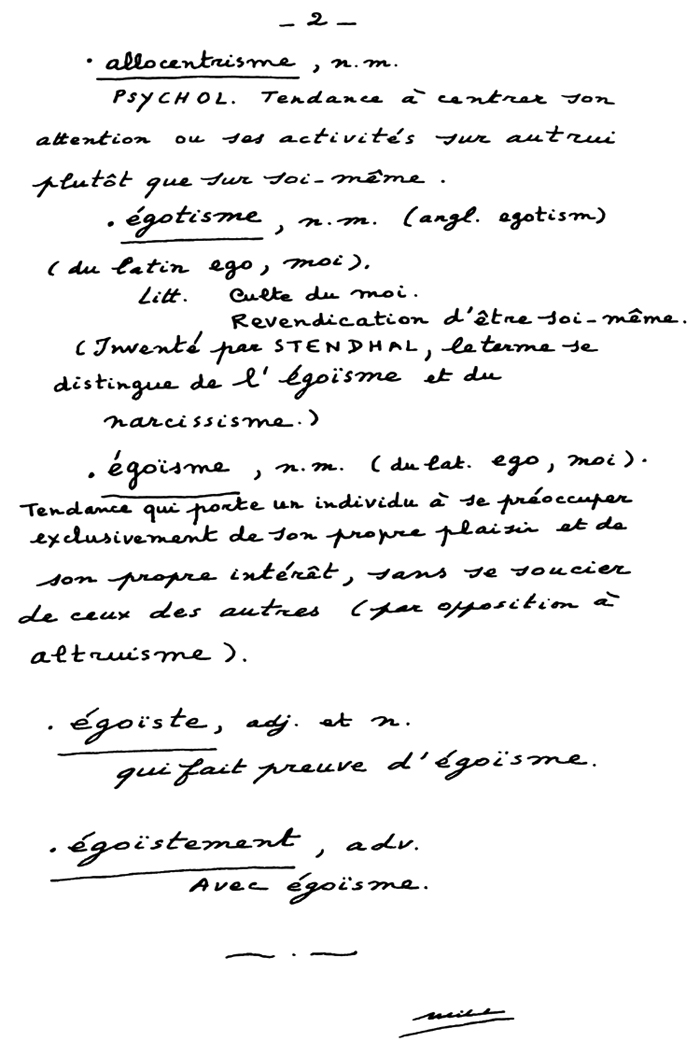 – 2 –
· allocentrisme, n.m.
PSYCHOL. Tendance à centrer son
attention ou ses activités sur autrui
plutôt que sur soi-même.
· égotisme, n.m. (angl. egotism)
(du latin ego, moi).
Litt. Culte du moi.
Revendication d'être soi-même.
(Inventé par STENDHAL, le terme se
distingue de l'égoïsme et du
narcissisme.)
· égoïsme, n.m. (du lat. ego, moi).
Tendance qui porte un individu à se préoccuper
exclusivement de son propre plaisir et de
son propre intérêt, sans se soucier
de ceux des autres (par opposition à
altruisme).
· égoïste, adj. et n.
qui fait preuve d'égoïsme.
· égoïstement, adv.
Avec égoïsme.
— . —